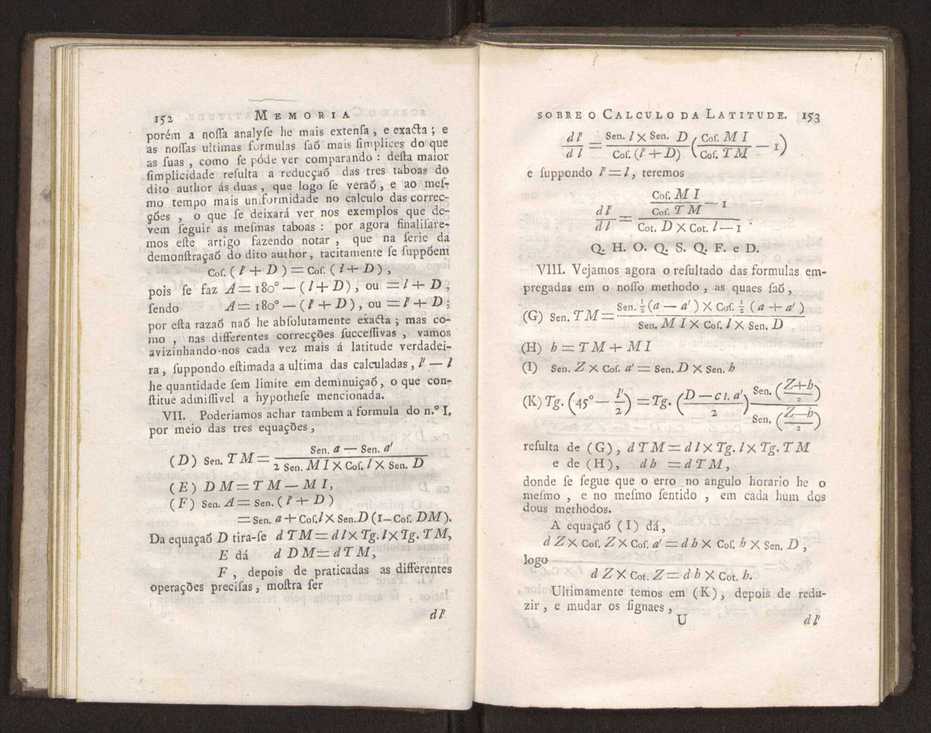 152 MEMORIA
porém a noſſa analyſe he mais extenſa, e exacta; e
as noſſas ultimas formulas ſaõ mais ſimplices do que
as ſuas, como ſe póde ver comparando: deſta maior
ſimplicidade reſulta a reducçaõ das tres taboas do
dito author ás duas, que logo ſe veraõ, e ao meſ-
mo tempo mais uniformidade no calculo das correc-
ções, o que ſe deixará ver nos exemplos que de-
vem ſeguir as meſmas taboas: por agora finaliſare-
mos eſte artigo fazendo notar, que na ſerie da
demonſtraçaõ do dito author, tacitamente ſe ſuppõem
Coſ. (l' + D) = Coſ. (l + D),
pois ſe faz A = 180° — (l + D), ou = l + D;
ſendo A = 180° — (l' + D), ou = l' + D;
por eſta razaõ naõ he abſolutamente exacta; mas co-
mo, nas differentes correcções ſucceſſivas, vamos
avizinhando-nos cada vez mais á latitude verdadei-
ra, ſuppondo eſtimada a ultima das calculadas, l' — l
he quantidade ſem limite em deminuiçaõ, o que con-
ſtitue admiſſivel a hypotheſe mencionada.
VII. Poderiamos achar tambem a formula do n.° I,
por meio das tres equações,
(D) Sen. TM = (Sen. a — Sen. a') / (2 Sen. MI × Coſ. l × Sen. D)
(E) DM = TM — MI,
(F) Sen. A = Sen. (l' + D)
= Sen. a + Coſ. l × Sen. D (1 — Coſ. DM).
Da equaçaõ D tira-ſe d TM = dl × Tg. l × Tg. TM,
E dá d DM = d TM,
F, depois de praticadas as differentes
operações preciſas, moſtra ſer
dl'
SOBRE O CALCULO DA LATITUDE. 153
dl' / dl = (Sen. l × Sen. D) / (Coſ. (l' + D)) (Coſ. MI / Coſ. TM — 1)
e ſuppondo l' = l, teremos
dl' / dl = (Coſ. MI / Coſ. TM — 1) / (Cot. D × Cot. l — 1).
Q. H. O. Q. S. Q. F. e D.
VIII. Vejamos agora o reſultado das formulas em-
pregadas em o noſſo methodo, as quaes ſaõ,
(G) Sen. TM = (Sen. ½ (a — a') × Coſ. ½ (a + a')) / (Sen. MI × Coſ. l × Sen. D)
(H) h = TM + MI
(I) Sen. Z × Coſ. a' = Sen. D × Sen. h
(K) Tg. (45° — l'/2) = Tg. ((D — c t. a')/2) Sen. ((Z+h)/2) / Sen. ((Z—h)/2)
reſulta de (G), d TM = dl × Tg. l × Tg. TM
e de (H), dh = d TM,
donde ſe ſegue que o erro no angulo horario he o
meſmo, e no meſmo ſentido, em cada hum dos
dous methodos.
A equaçaõ (I) dá,
d Z × Coſ. Z × Coſ. a' = dh × Coſ. h × Sen. D,
logo
d Z × Cot. Z = dh × Cot. h.
Ultimamente temos em (K), depois de redu-
zir, e mudar os ſignaes,
U dl'